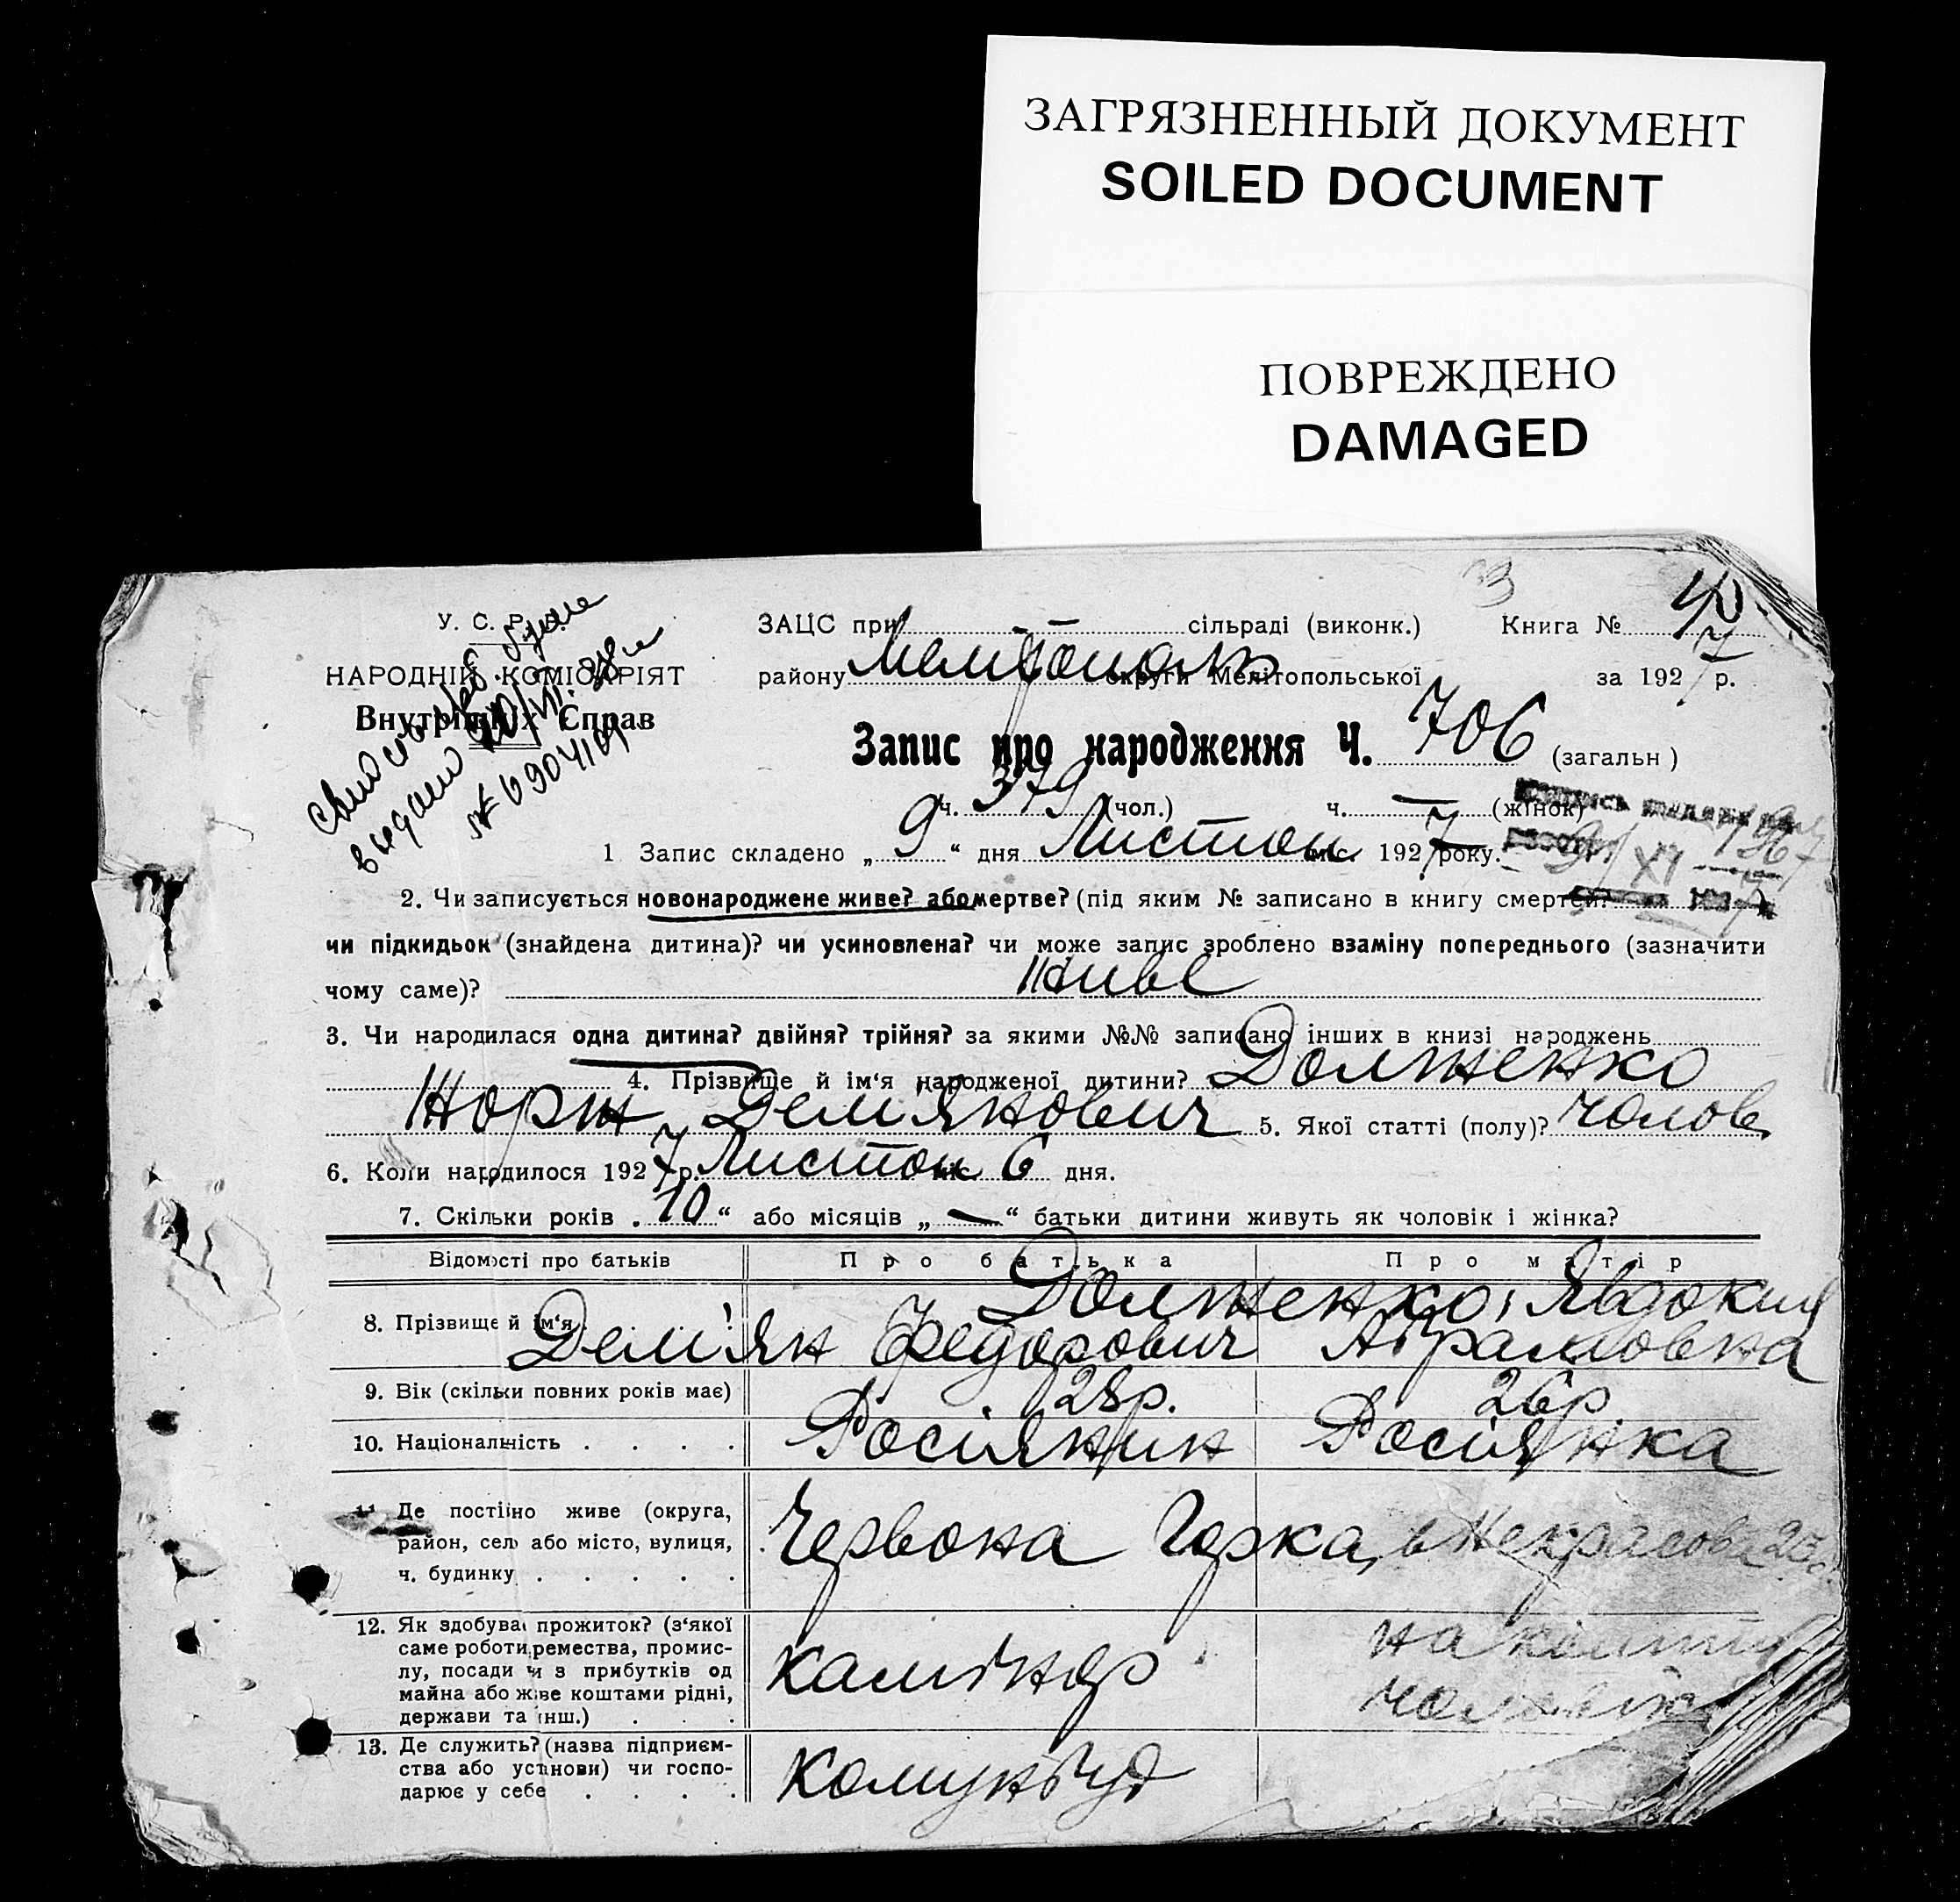 ЗАГРЯЗНЕННЫЙ ДОКУМЕНТ
SOILED DOCUMENT
ПОВРЕЖДЕНО
DAMAGED
У. С. Р. Р.
НАРОДНІЙ КОМІСАРІЯТ
Внутрішніх Справ
ЗАЦС при — сільраді (виконк.) Книга №
району Мелітополь округи Мелітопольської за 1927 р.
Запис про народження Ч. 706 (загальн)
ч. 379 (чол.) ч. — (жінок)
1 Запис складено „ 9 “ дня Листоп міс. 1927 року.
2. Чи записується новонароджене живе? або мертве? (під яким № записано в книгу смертей?
чи підкидьок (знайдена дитина)? чи усиновлена? чи може запис зроблено взаміну попереднього (зазначити
чому саме)? Живе
3. Чи народилася одна дитина? двійня? трійня? за якими №№ записано інших в книзі народжень
4. Прізвище й ім‘я народженої дитини? Долженко
Жорж Дем'янович 5. Якої статті (полу)? Чолов.
6. Коли народилося 1927 р. Листоп міс. 6 дня.
7. Скільки років „ 10 “ або місяців „ — “ батьки дитини живуть як чоловік і жінка?
Відомості про батьків Про батька Про матір
8. Прізвище й ім‘я Долженко, Явдокия
Дем'ян Федорович Абрамовна
9. Вік (скільки повних років має) 28р. 26р
10. Національність . . . . Росіянин Росіянка
11. Де постійно живе (округа,
район, село або місто, вулиця,
ч. будинку . . . . . Червона Горка, в Некрасова 23
12. Як здобуває прожиток? (з‘якої
саме роботи, ремества, промис-
лу, посади чи з прибутків од
майна або живе коштами рідні,
держави та інш.) . . . каміняр на кошти
чоловіка
13. Де служить? (назва підприєм-
ства або установи) чи госпо-
дарює у себе . . . . Комунбуд